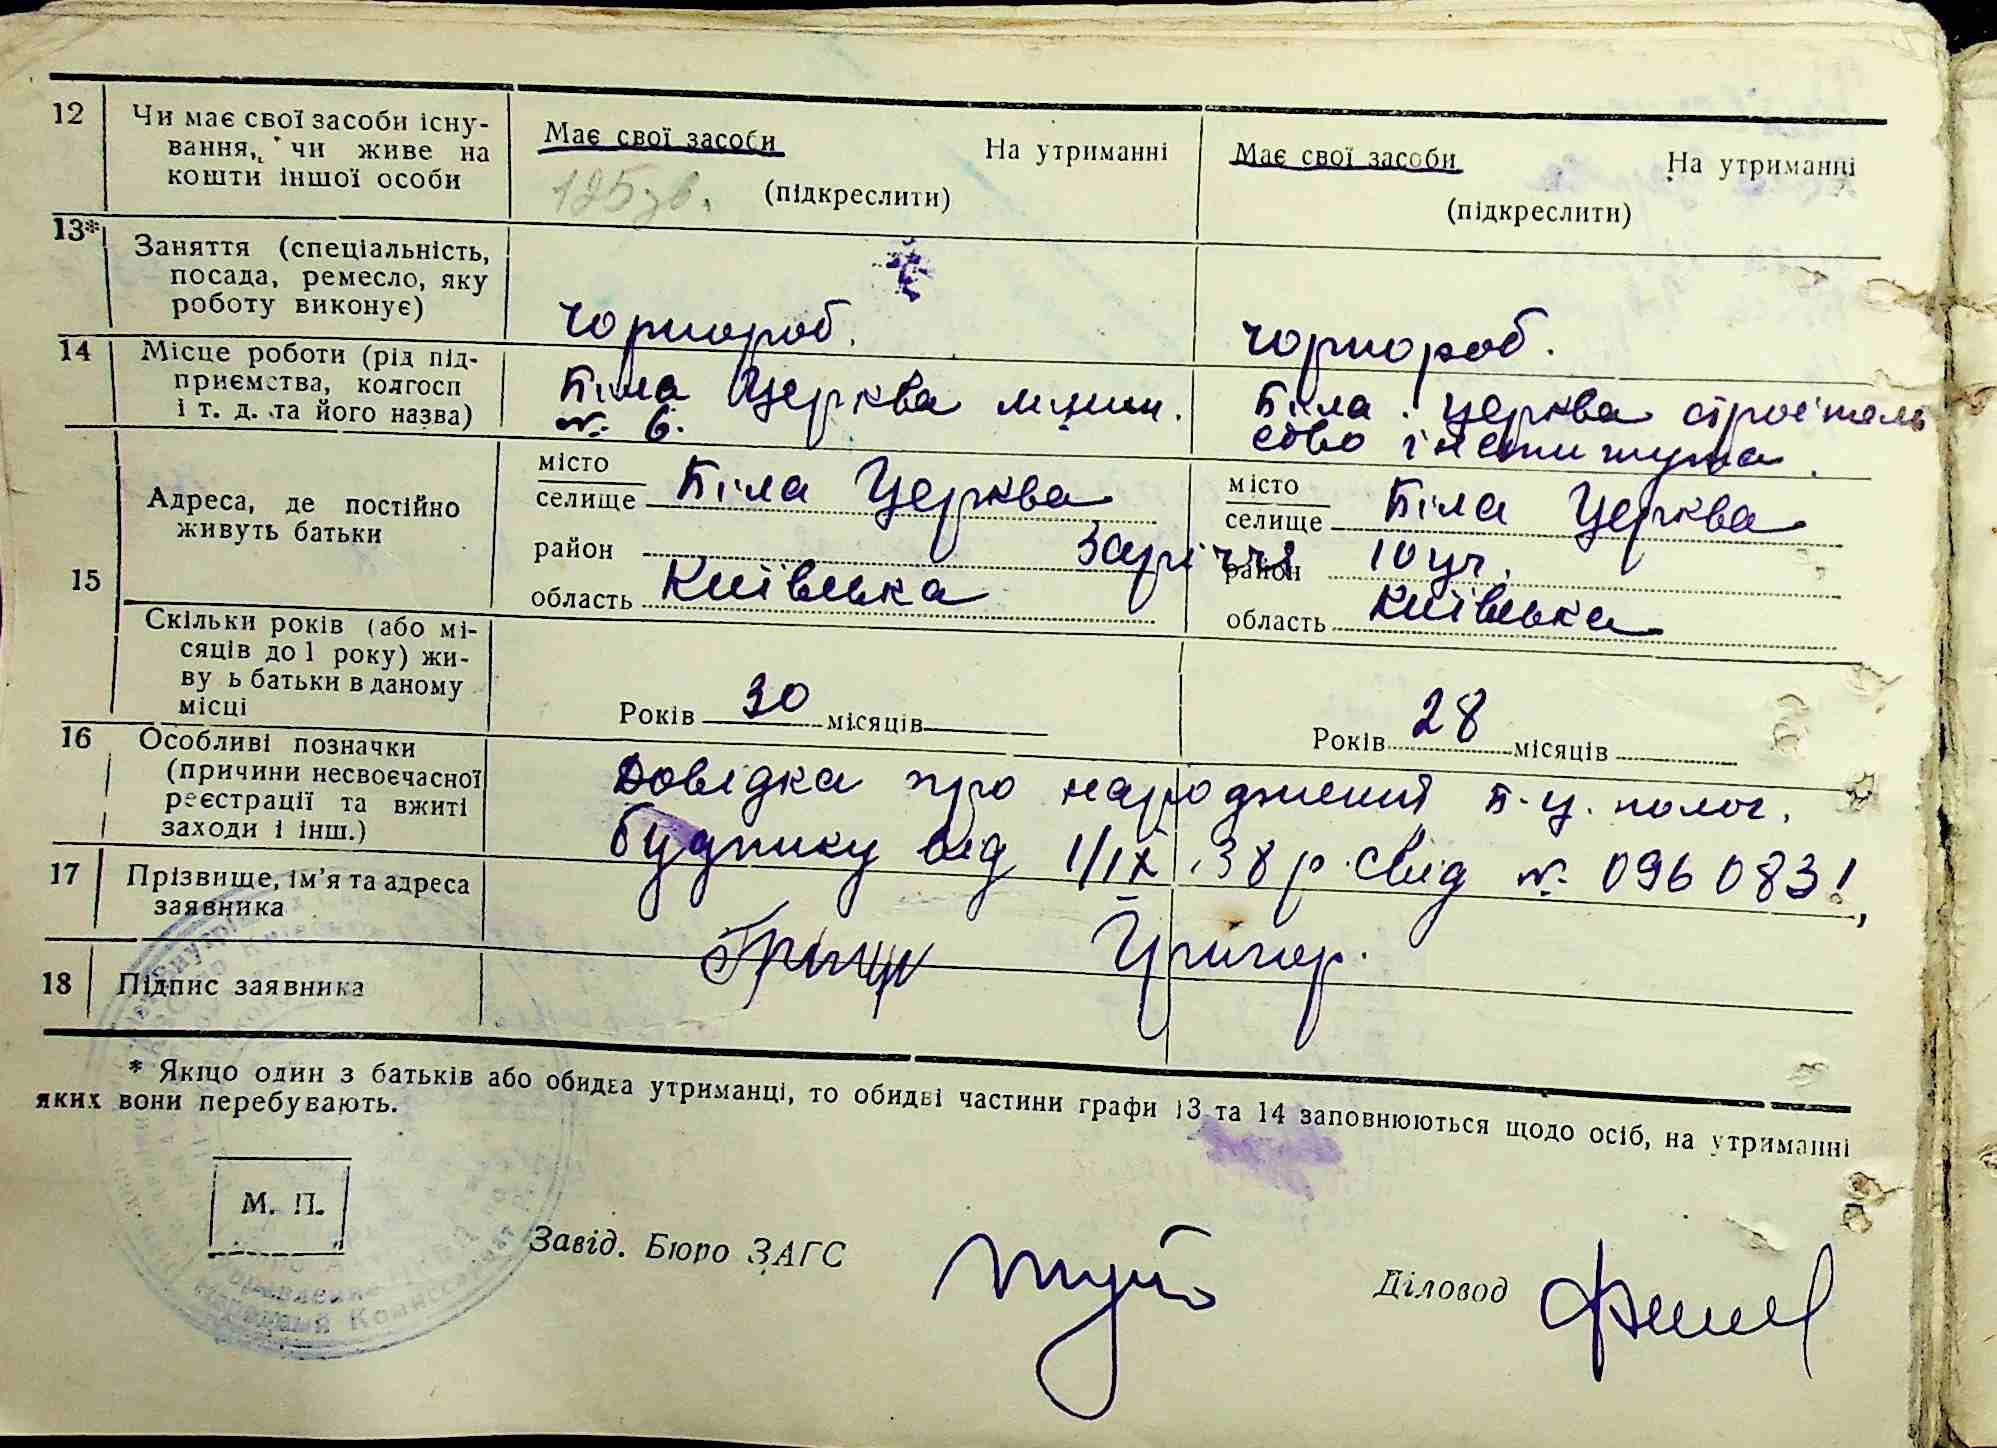 12 Чи має свої засоби існу-
вання, чи живе на
кошти іншої особи
Має свої засоби На утриманні
125
(підкреслити)
Має свої засоби На утриманні
(підкреслити)
13* Заняття (спеціальність,
посада, ремесло, яку
роботу виконує)
Чорнороб.
Чорнороб.
14 Місце роботи (рід під-
приємства, колгосп
і т. д. та його назва)
Біла Церква
№ 6.
Біла Церква строітель
ство інститута.
15
Адреса, де постійно
живуть батьки
місто
селище Біла Церква
район Заріччя
область Київська
місто
селище Біла Церква
район 10
область Київська
Скільки років (або мі-
сяців до 1 року) жи-
ву ь батьки в даному
місці
Років 30 місяців
Років 28 місяців
16 Особливі позначки
(причини несвоєчасної
реєстрації та вжиті
заходи і інш.)
Довідка про народження Б-Ц. полог.
будинку від 1/IX .38 р. Свід № 096083!,
17 Прізвище, ім'я та адреса
заявника
18 Підпис заявника
* Якщо один з батьків або обидва утриманці, то обидві частини графи 13 та 14 заповнюються щодо осіб, на утриманні
яких вони перебувають.
М. П.
Завід. Бюро ЗАГС
Діловод